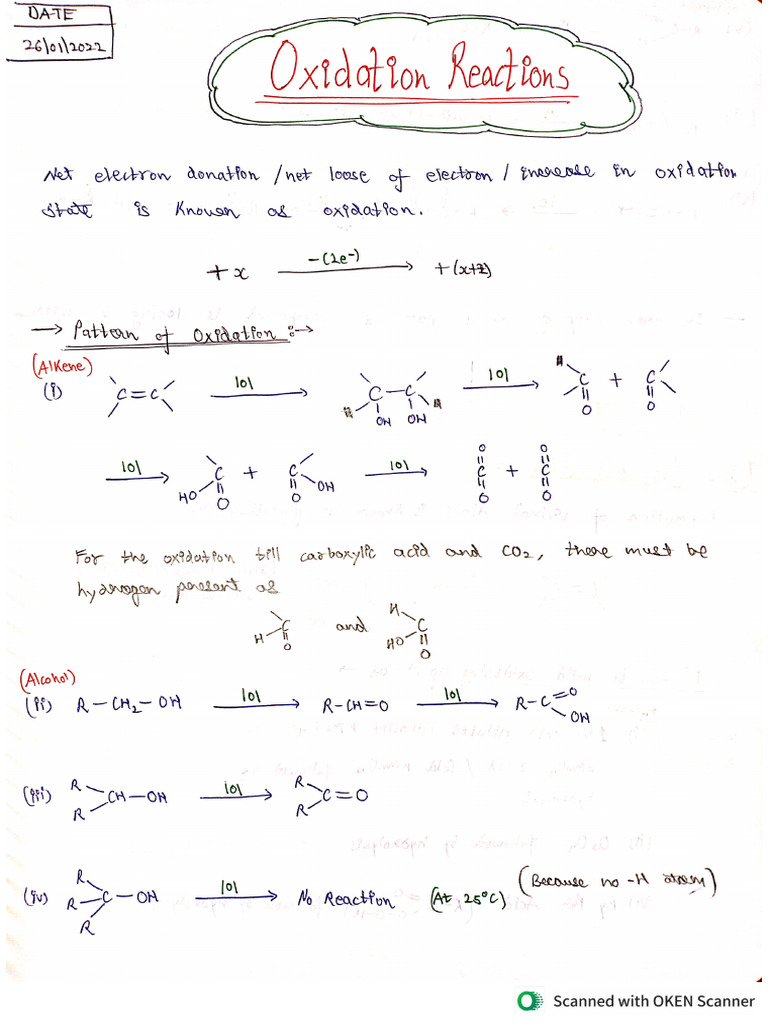 DATE
26/01/2022
Oxidation Reactions
Net electron donation / net loose of electron / increase in oxidation
state is known as oxidation.
+x —(2e-)→ +(x+2)
→ Pattern of Oxidation :→
(Alkene)
(i) C=C |O| C—C OH OH |O| C O + C O
|O| HO C O + C O OH |O| O C O + O C O
For the oxidation till carboxylic acid and CO2, there must be
hydrogen present as
H C O and H HO C O
(Alcohol)
(ii) R—CH2—OH |O| R—CH=O |O| R—C=O OH
(iii) R R CH—OH |O| R R C=O
(iv) R R R C—OH |O| No Reaction (At 25°C) (Because no -H atom)
Scanned with OKEN Scanner